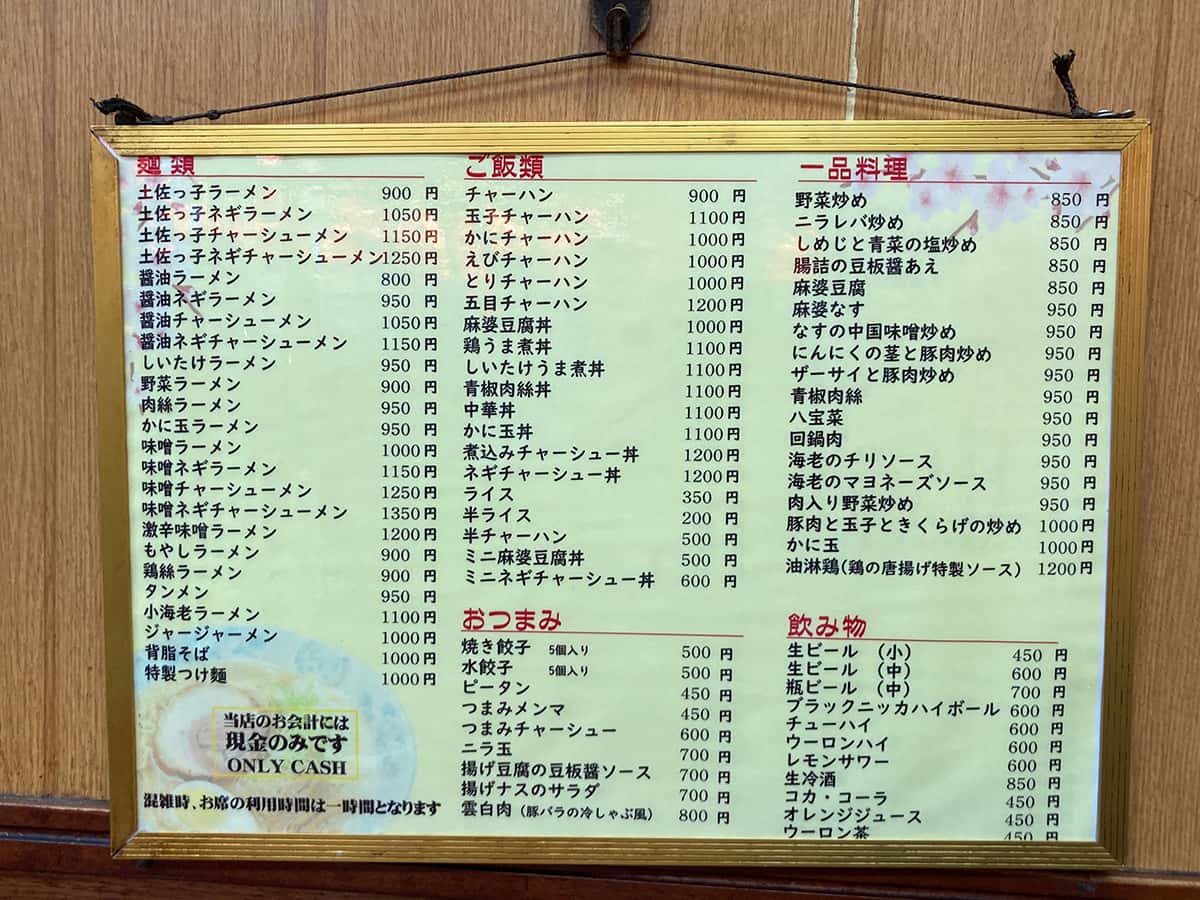 麺類
土佐っ子ラーメン 900 円
土佐っ子ネギラーメン 1050円
土佐っ子チャーシューメン 1150円
土佐っ子ネギチャーシューメン1250円
醤油ラーメン 800 円
醤油ネギラーメン 950 円
醤油チャーシューメン 1050円
醤油ネギチャーシューメン 1150円
しいたけラーメン 950 円
野菜ラーメン 900 円
肉絲ラーメン 950 円
かに玉ラーメン 950 円
味噌ラーメン 1000円
味噌ネギラーメン 1150円
味噌チャーシューメン 1250円
味噌ネギチャーシューメン 1350円
激辛味噌ラーメン 1200円
もやしラーメン 900 円
鶏絲ラーメン 900 円
タンメン 950 円
小海老ラーメン 1100円
ジャージャーメン 1000円
背脂そば 1000円
特製つけ麺 1000円
当店のお会計には
現金のみです
ONLY CASH
混雑時、お席の利用時間は一時間となります
ご飯類
チャーハン 900 円
玉子チャーハン 1100円
かにチャーハン 1000円
えびチャーハン 1000円
とりチャーハン 1000円
五目チャーハン 1200円
麻婆豆腐丼 1000円
鶏うま煮丼 1100円
しいたけうま煮丼 1100円
青椒肉絲丼 1100円
中華丼 1100円
かに玉丼 1100円
煮込みチャーシュー丼 1200円
ネギチャーシュー丼 1200円
ライス 350 円
半ライス 200 円
半チャーハン 500 円
ミニ麻婆豆腐丼 500 円
ミニネギチャーシュー丼 600 円
おつまみ
焼き餃子 5個入り 500 円
水餃子 5個入り 500 円
ピータン 450 円
つまみメンマ 450 円
つまみチャーシュー 600 円
ニラ玉 700 円
揚げ豆腐の豆板醤ソース 700 円
揚げナスのサラダ 700 円
雲白肉（豚バラの冷しゃぶ風） 800 円
一品料理
野菜炒め 850 円
ニラレバ炒め 850 円
しめじと青菜の塩炒め 850 円
腸詰の豆板醤あえ 850 円
麻婆豆腐 850 円
麻婆なす 950 円
なすの中国味噌炒め 950 円
にんにくの茎と豚肉炒め 950 円
ザーサイと豚肉炒め 950 円
青椒肉絲 950 円
八宝菜 950 円
回鍋肉 950 円
海老のチリソース 950 円
海老のマヨネーズソース 950 円
肉入り野菜炒め 950 円
豚肉と玉子ときくらげの炒め 1000円
かに玉 1000円
油淋鶏（鶏の唐揚げ特製ソース） 1200円
飲み物
生ビール （小） 450 円
生ビール （中） 600 円
瓶ビール （中） 700 円
ブラックニッカハイボール 600 円
チューハイ 600 円
ウーロンハイ 600 円
レモンサワー 600 円
生冷酒 850 円
コカ・コーラ 450 円
オレンジジュース 450 円
ウーロン茶 450 円